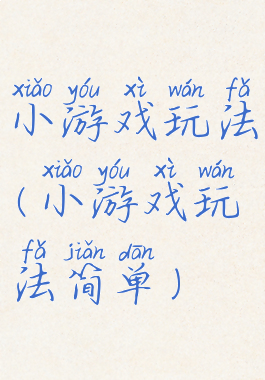 xiǎo yóu xì wán fǎ
小游戏玩法
xiǎo yóu xì wán
(小游戏玩
fǎ jiǎn dān
法简单)